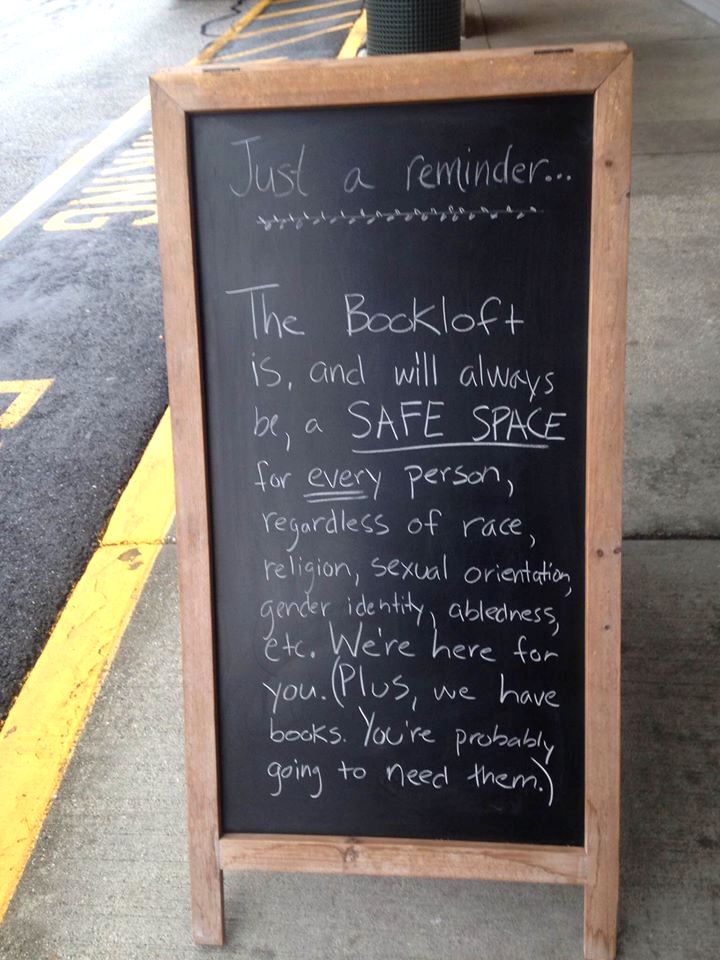 Just a reminder...
The Bookloft
is, and will always
be, a SAFE SPACE
for every person,
regardless of race,
religion, sexual orientation,
gender identity, abledness,
etc. We're here for
you. (Plus, we have
books. You're probably
going to need them.)